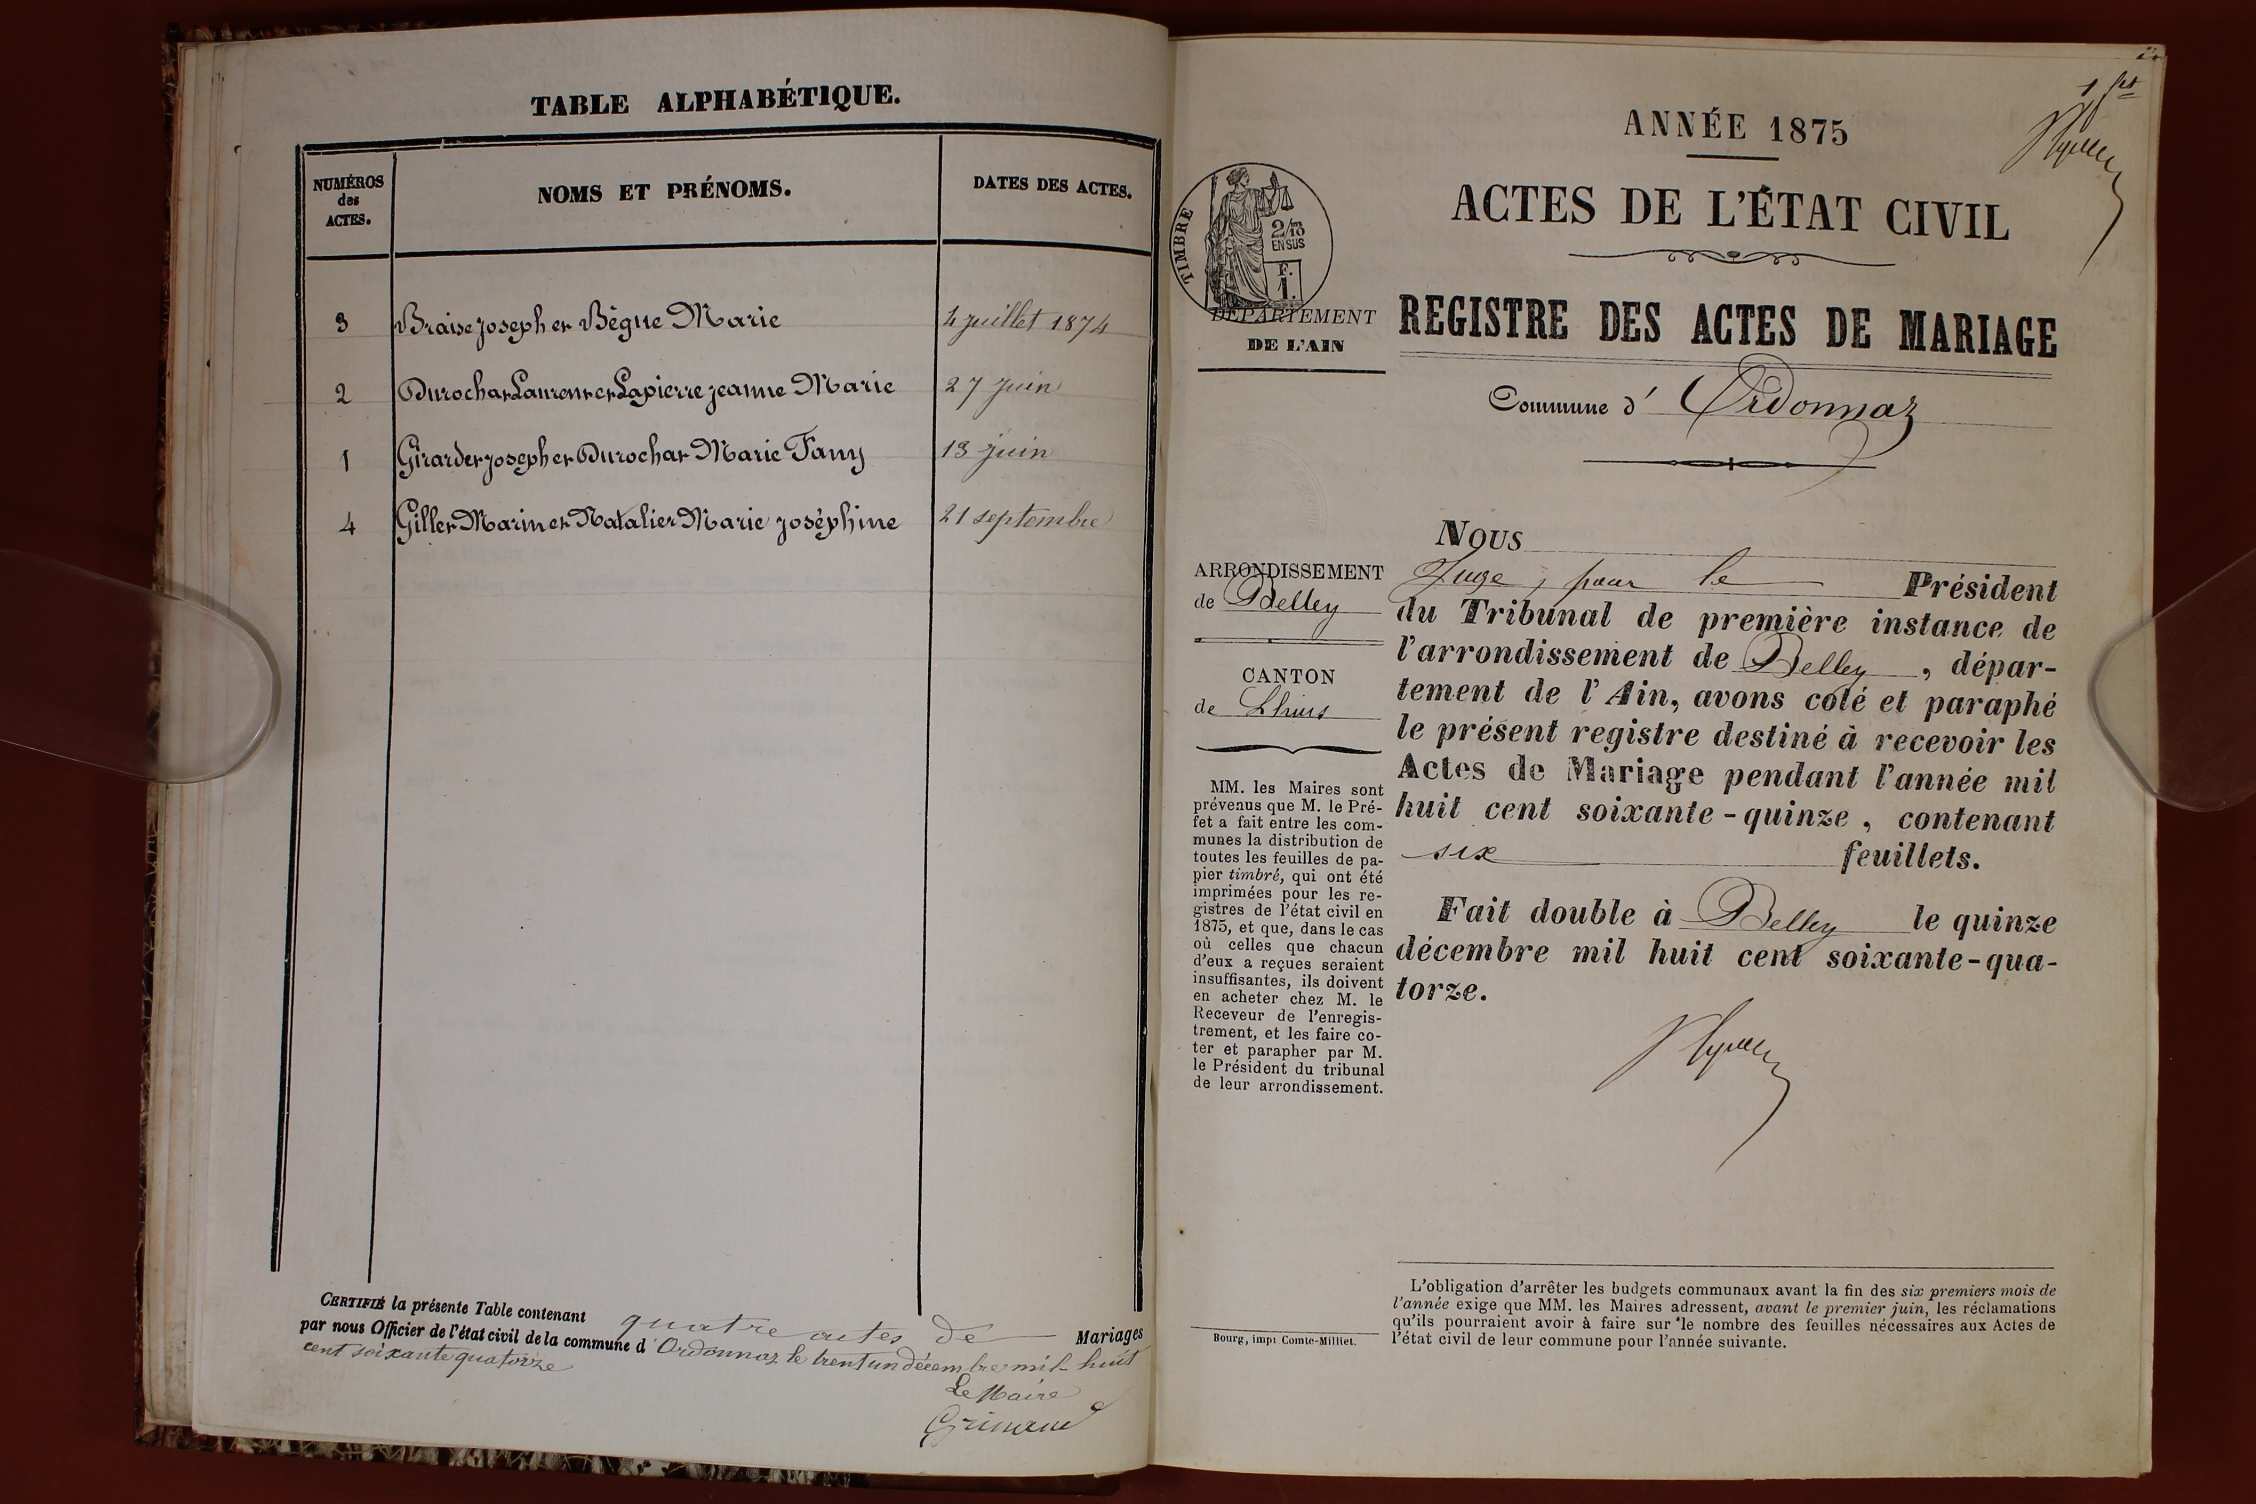 TABLE ALPHABÉTIQUE.
NUMÉROS
des
ACTES.
NOMS ET PRÉNOMS.
DATES DES ACTES.
3 Braise Joseph et Bègue Marie 4 juillet 1874
2 Durochat Laurent et Lapierre Jeanne Marie 27 juin
1 Girardet Joseph et Durochat Marie Fany 13 juin
4 Gillet Marin et Natalier Marie Joséphine 21 septembre
CERTIFIÉ la présente Table contenant quatre actes de Mariages
par nous Officier de l'état civil de la commune d'Ordonnaz le trent un décembre mil huit
cent soixante quatorze
Le Maire
1 fet
ANNÉE 1875
ACTES DE L'ÉTAT CIVIL
TIMBRE
2/10
EN SUS
F.
1.
DÉPARTEMENT
DE L'AIN
REGISTRE DES ACTES DE MARIAGE
Commune d' Ordonnaz
ARRONDISSEMENT
de Belley
CANTON
de Lhuis
MM. les Maires sont
prévenus que M. le Pré-
fet a fait entre les com-
munes la distribution de
toutes les feuilles de pa-
pier timbré, qui ont été
imprimées pour les re-
gistres de l'état civil en
1875, et que, dans le cas
où celles que chacun
d'eux a reçues seraient
insuffisantes, ils doivent
en acheter chez M. le
Receveur de l'enregis-
trement, et les faire co-
ter et parapher par M.
le Président du tribunal
de leur arrondissement.
Bourg, impr Comte-Milliet.
NOUS
Juge, pour le Président
du Tribunal de première instance de
l'arrondissement de Belley, dépar-
tement de l'Ain, avons coté et paraphé
le présent registre destiné à recevoir les
Actes de Mariage pendant l'année mil
huit cent soixante-quinze, contenant
six feuillets.
Fait double à Belley le quinze
décembre mil huit cent soixante-qua-
torze.
L'obligation d'arrêter les budgets communaux avant la fin des six premiers mois de
l'année exige que MM. les Maires adressent, avant le premier juin, les réclamations
qu'ils pourraient avoir à faire sur le nombre des feuilles nécessaires aux Actes de
l'état civil de leur commune pour l'année suivante.